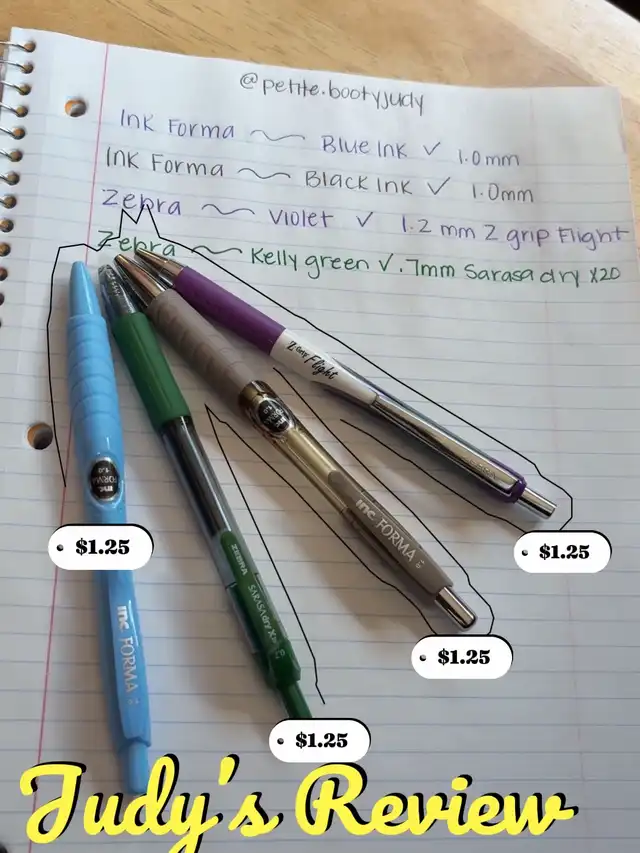 @petite.bootyjudy
Ink Forma ~ Blue Ink ✓ 1.0mm
Ink Forma ~ Black Ink ✓ 1.0mm
Zebra ~ Violet ✓ 1.2 mm Z grip Flight
Zebra ~ Kelly green ✓ .7mm Sarasa dry X20
Z Grip Flight
inc. FORMA 1.0
$1.25
$1.25
ZEBRA SARASA dry X20
inc FORMA
inc FORMA
$1.25
$1.25
Judy's Review